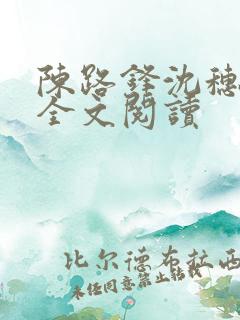 陳路鋒沈穗
全文閱讀
比尔德布拉西
未经同意禁止转载